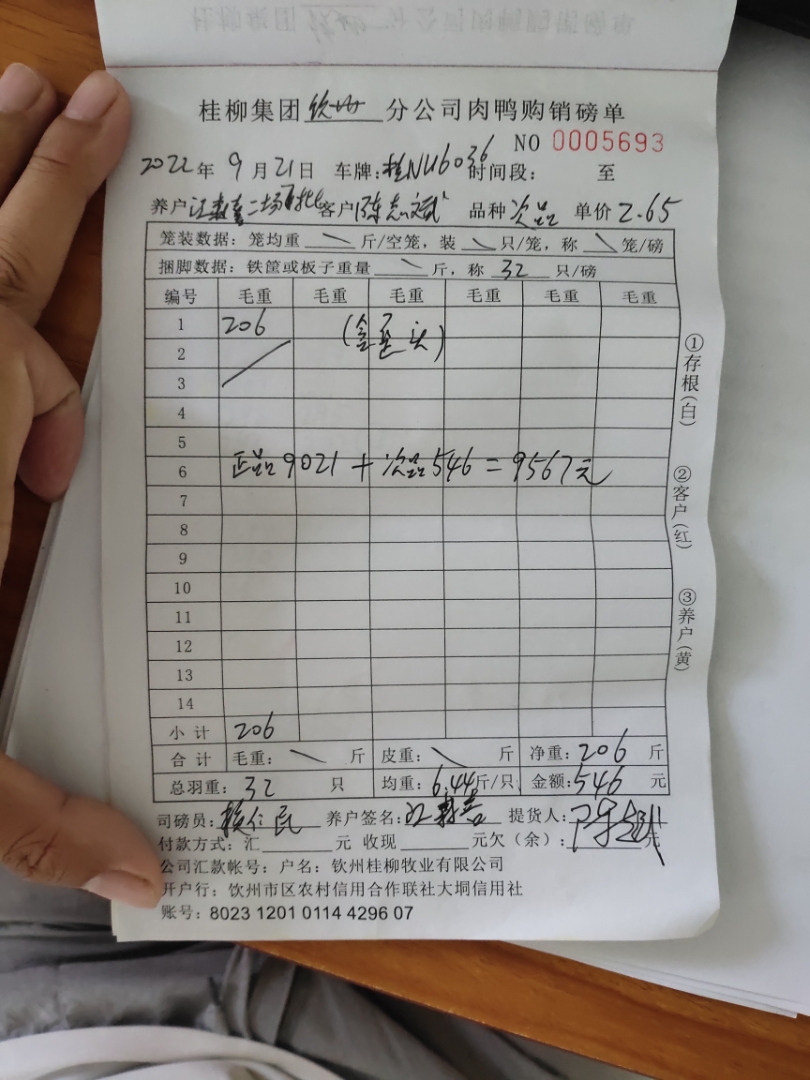 桂柳集团 钦州 分公司肉鸭购销磅单
NO 0005693
2022年 9月21日 车牌:桂NU6036 时间段: 至
养户 二场 客户 陈志斌 品种 次品 单价 2.65
笼装数据: 笼均重 \ 斤/空笼, 装 \ 只/笼, 称 \ 笼/磅
捆脚数据: 铁筐或板子重量 \ 斤, 称 32 只/磅
编号 毛重 毛重 毛重 毛重 毛重 毛重
1 206
2
3
4
5
6 正品9021 + 次品546 = 9567元
7
8
9
10
11
12
13
14
小计 206
合计 毛重: \ 斤 皮重: \ 斤 净重: 206 斤
总羽重: 32 只 均重: 6.44斤/只 金额: 546 元
司磅员: 养户签名: 提货人:
付款方式: 汇 元 收现 元欠(余): 元
公司汇款帐号: 户名: 钦州桂柳牧业有限公司
开户行: 饮州市区农村信用合作联社大垌信用社
账号: 8023 1201 0114 4296 07
①存根(白)
②客户(红)
③养户(黄)